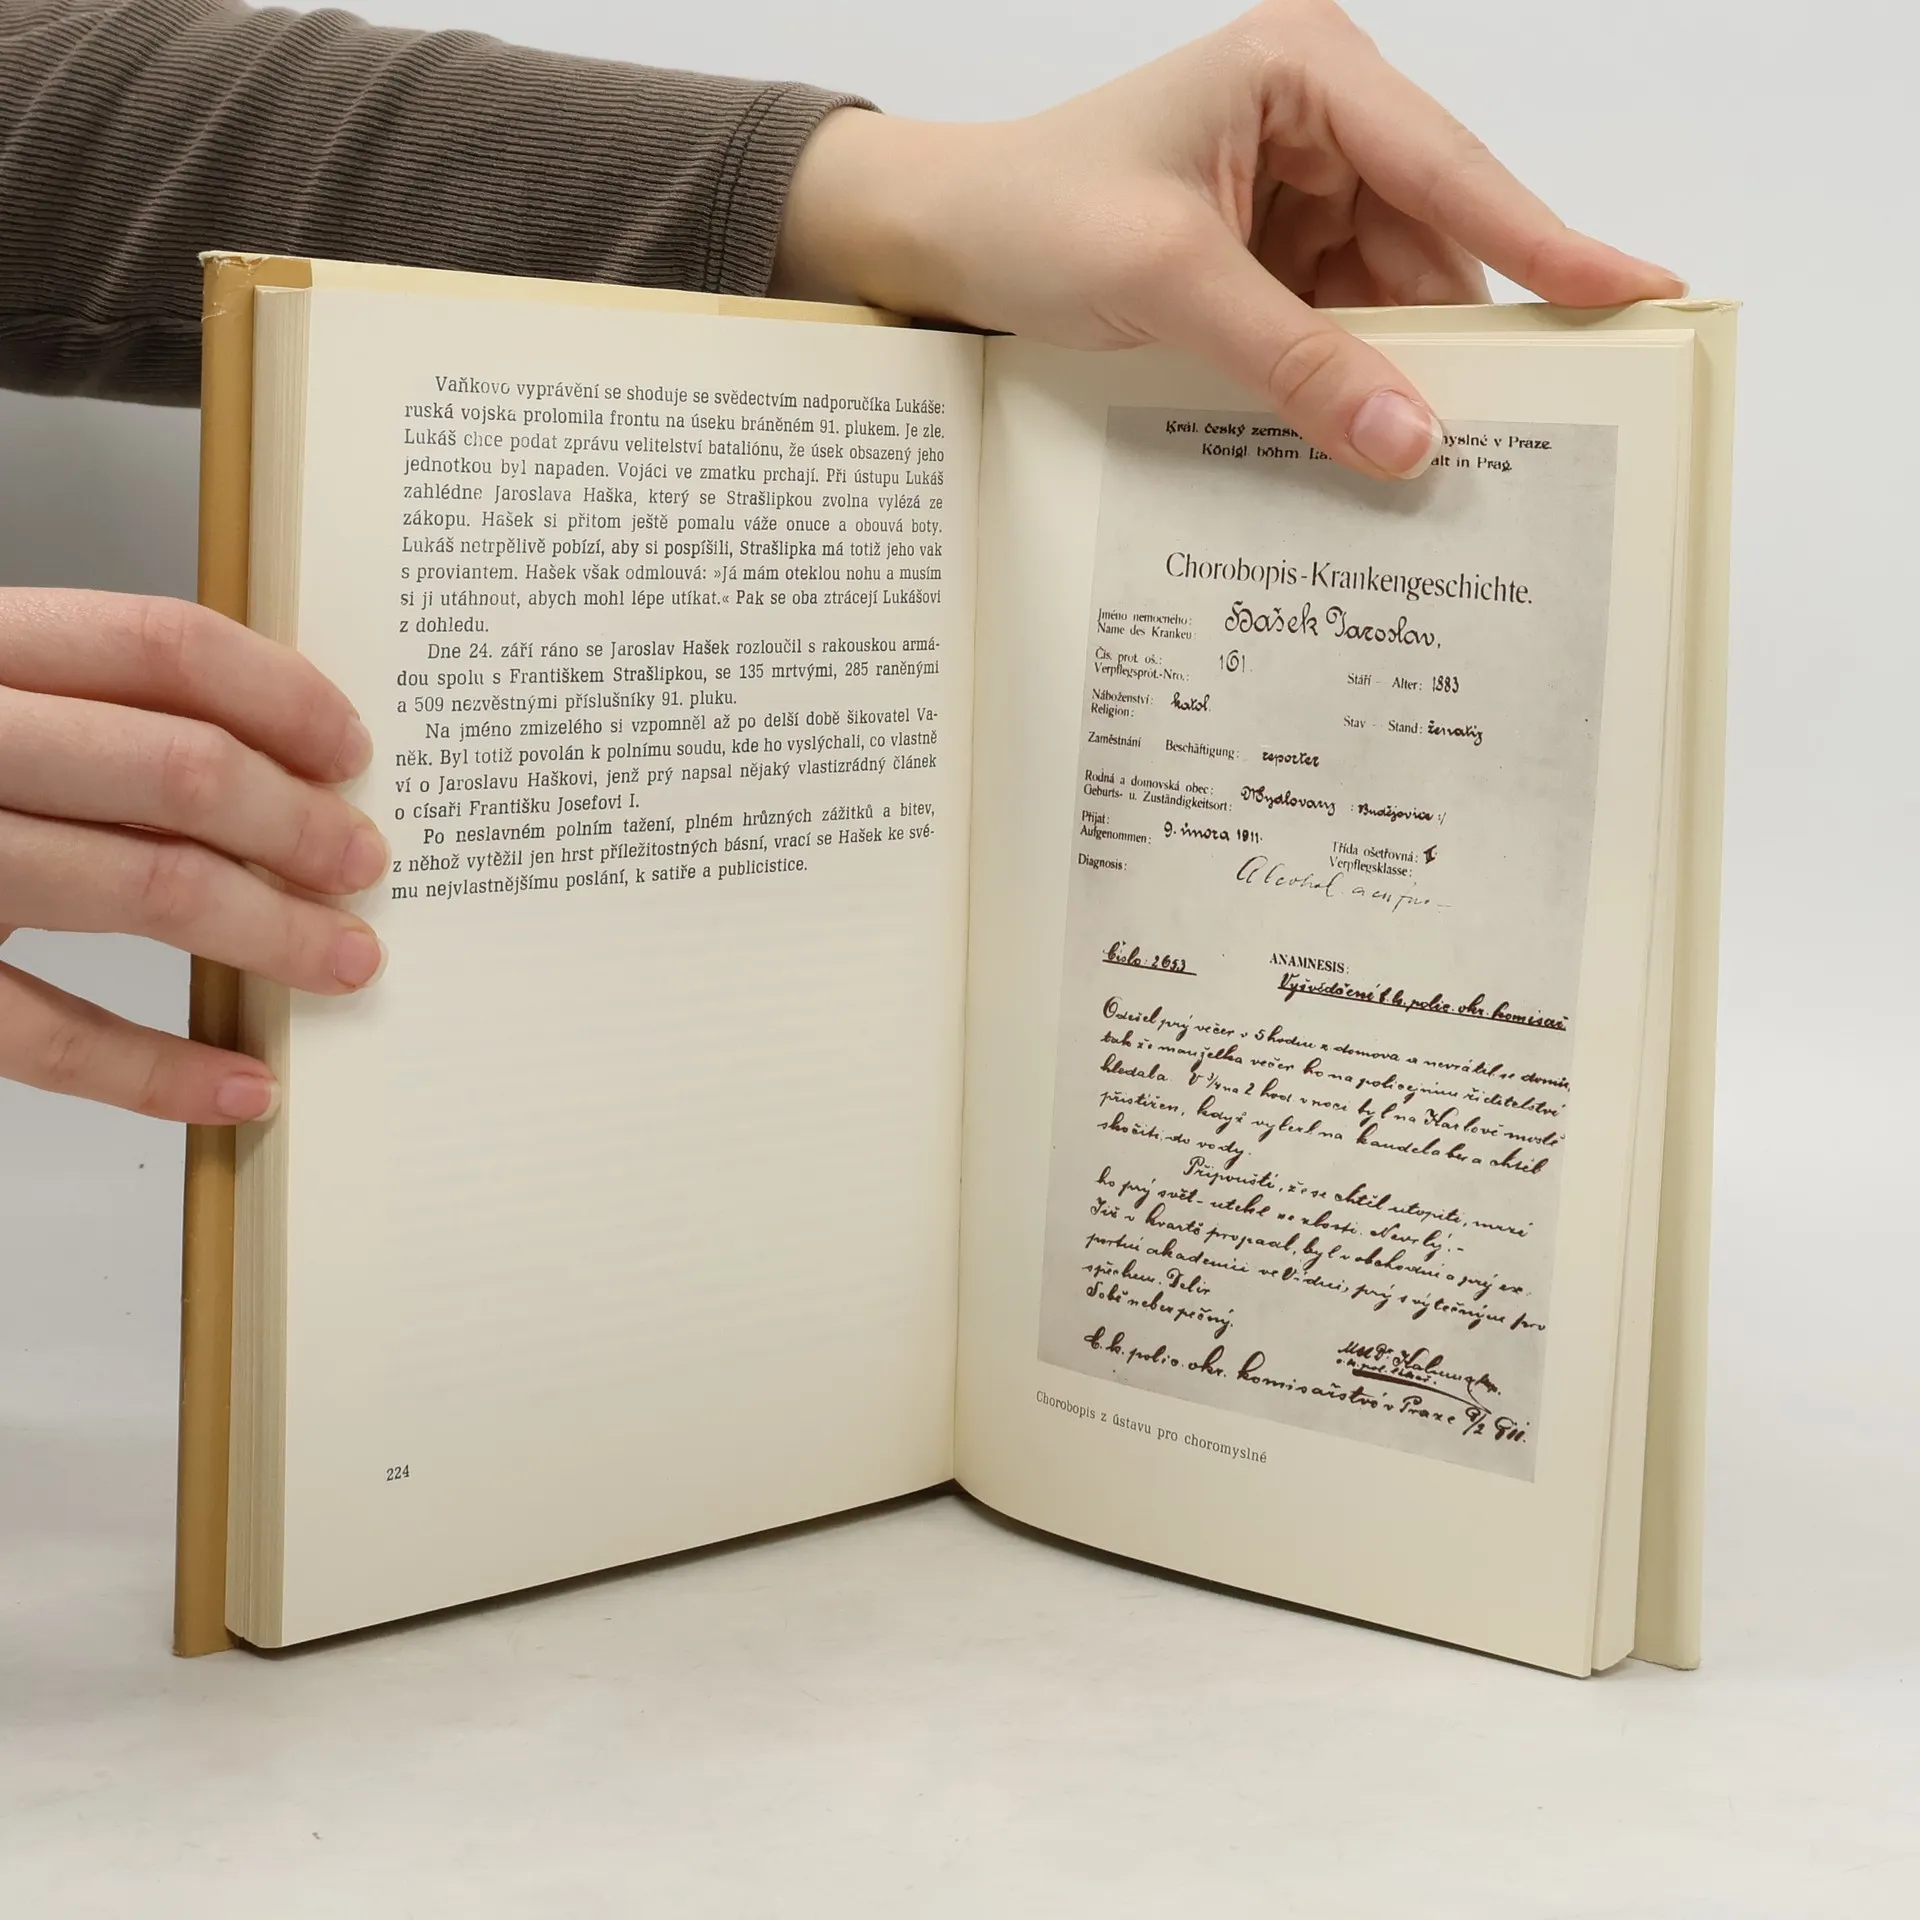 Vaňkovo vyprávění se shoduje se svědectvím nadporučíka Lukáše:
ruská vojska prolomila frontu na úseku bráněném 91. plukem. Je zle.
Lukáš chce podat zprávu velitelství bataliónu, že úsek obsazený jeho
jednotkou byl napaden. Vojáci ve zmatku prchají. Při ústupu Lukáš
zahlédne Jaroslava Haška, který se Strašlipkou zvolna vylézá ze
zákopu. Hašek si přitom ještě pomalu váže onuce a obouvá boty.
Lukáš netrpělivě pobízí, aby si pospíšili, Strašlipka má totiž jeho vak
s proviantem. Hašek však odmlouvá: »Já mám oteklou nohu a musím
si ji utáhnout, abych mohl lépe utíkat.« Pak se oba ztrácejí Lukášovi
z dohledu.
Dne 24. září ráno se Jaroslav Hašek rozloučil s rakouskou armá-
dou spolu s Františkem Strašlipkou, se 135 mrtvými, 285 raněnými
a 509 nezvěstnými příslušníky 91. pluku.
Na jméno zmizelého si vzpomněl až po delší době šikovatel Va-
něk. Byl totiž povolán k polnímu soudu, kde ho vyslýchali, co vlastně
ví o Jaroslavu Haškovi, jenž prý napsal nějaký vlastizrádný článek
o císaři Františku Josefovi I.
Po neslavném polním tažení, plném hrůzných zážitků a bitev,
z něhož vytěžil jen hrst příležitostných básní, vrací se Hašek ke své-
mu nejvlastnějšímu poslání, k satiře a publicistice.
224
Král. český zemsk yslné v Praze.
Königl. böhm. La alt in Prag.
Chorobopis-Krankengeschichte.
Jméno nemocného: Hašek Jaroslav,
Name des Kranken:
Čís. prot. oš.: 161.
Verpflegsprot.-Nro.:
Stáří - Alter: 1883
Náboženství: katol.
Religion:
Stav - Stand: ženatý
Zaměstnání Beschäftigung: reporter
Rodná a domovská obec: Mydlovary :Budějovice:/
Geburts- u. Zuständigkeitsort:
Přijat: 9. února 1911.
Aufgenommen:
Třída ošetřovná:
Verpflegsklasse:
Diagnosis: Alcohol
Číslo: 2653
ANAMNESIS:
Vysvědčení c. k. polic. okr. komisař.
Odešel prý večer v 5 hodin z domova a nevrátil se domů,
tak že manželka večer ho na policejním ředitelství
hledala. V 3/4 na 2 hod. v noci byl na Karlově mostě
přistižen, když vylezl na kandelabr a chtěl
skočiti do vody.
Připouští, že se chtěl utopiti, mrzí
ho prý svět - utekl ze zlosti. Nevrlý. -
Již v kvartě propadl, byl v obchodní a prý ex-
portní akademii ve Vídni, prý s výtečným pro
spěchem. Delir
Sobě nebezpečný.
MUDr.
C. k. polic. okr. komisařství v Praze 9/2 911.
Chorobopis z ústavu pro choromyslné